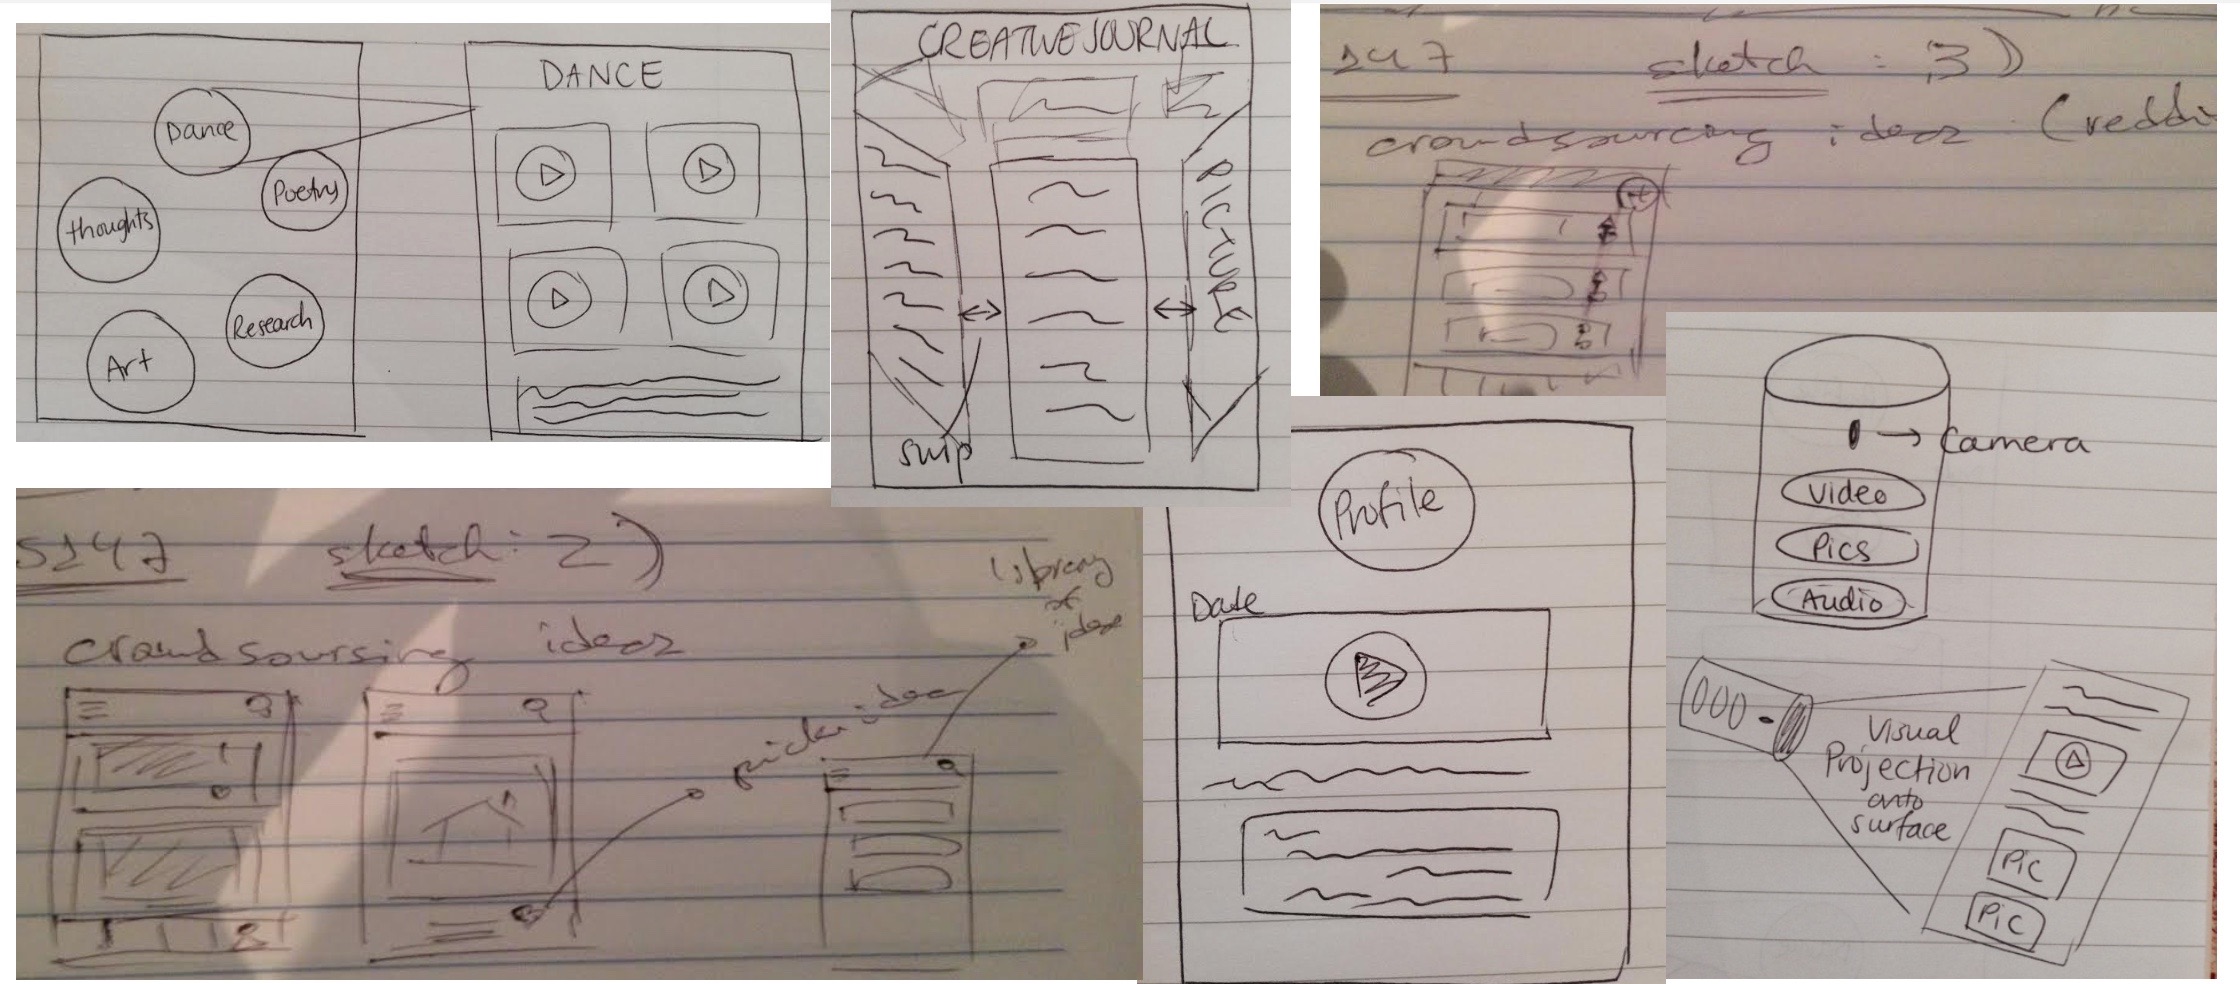 Dance
Poetry
thoughts
Research
Art
DANCE
CREATIVE JOURNAL
PICTURE
swip
147 sketch : 3)
crowdsourcing ideas (reddi
S147 sketch: 2)
crowdsoursing ideas
library
of
idea
pick idea
Profile
Date
Camera
Video
Pics
Audio
Visual
Projection
onto
surface
Pic
Pic